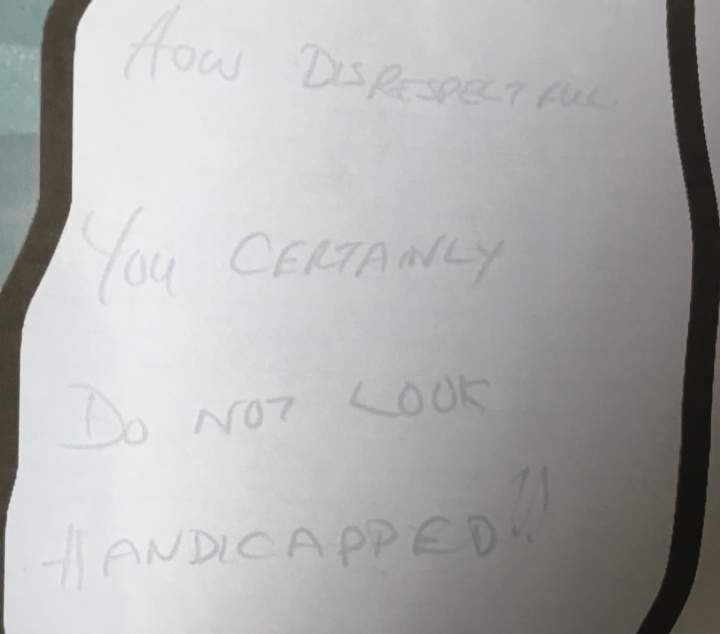 How DISRESPECTFUL
You CERTAINLY
Do NOT LOOK
HANDICAPPED!!